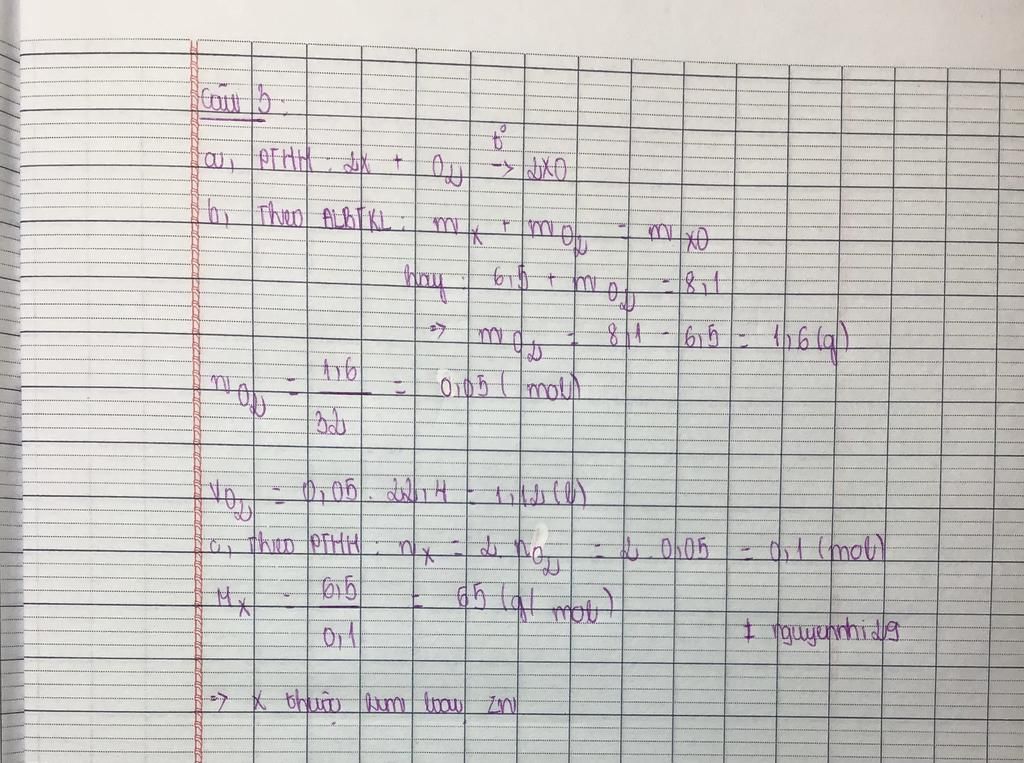 Câu 3:
t°
a, PTHH: 2X + O2 → 2XO
b, Theo ĐLBTKL: mX + mO2 = mXO
hay: 6,5 + mO2 = 8,1
=> mO2 = 8,1 - 6,5 = 1,6 (g)
nO2 = 1,6 / 32 = 0,05 (mol)
VO2 = 0,05 . 22,4 = 1,12 (l)
c, Theo PTHH: nX = 2. nO2 = 2. 0,05 = 0,1 (mol)
MX = 6,5 / 0,1 = 65 (g/mol)
± nguyennhi29
=> X thuộc kim loại Zn